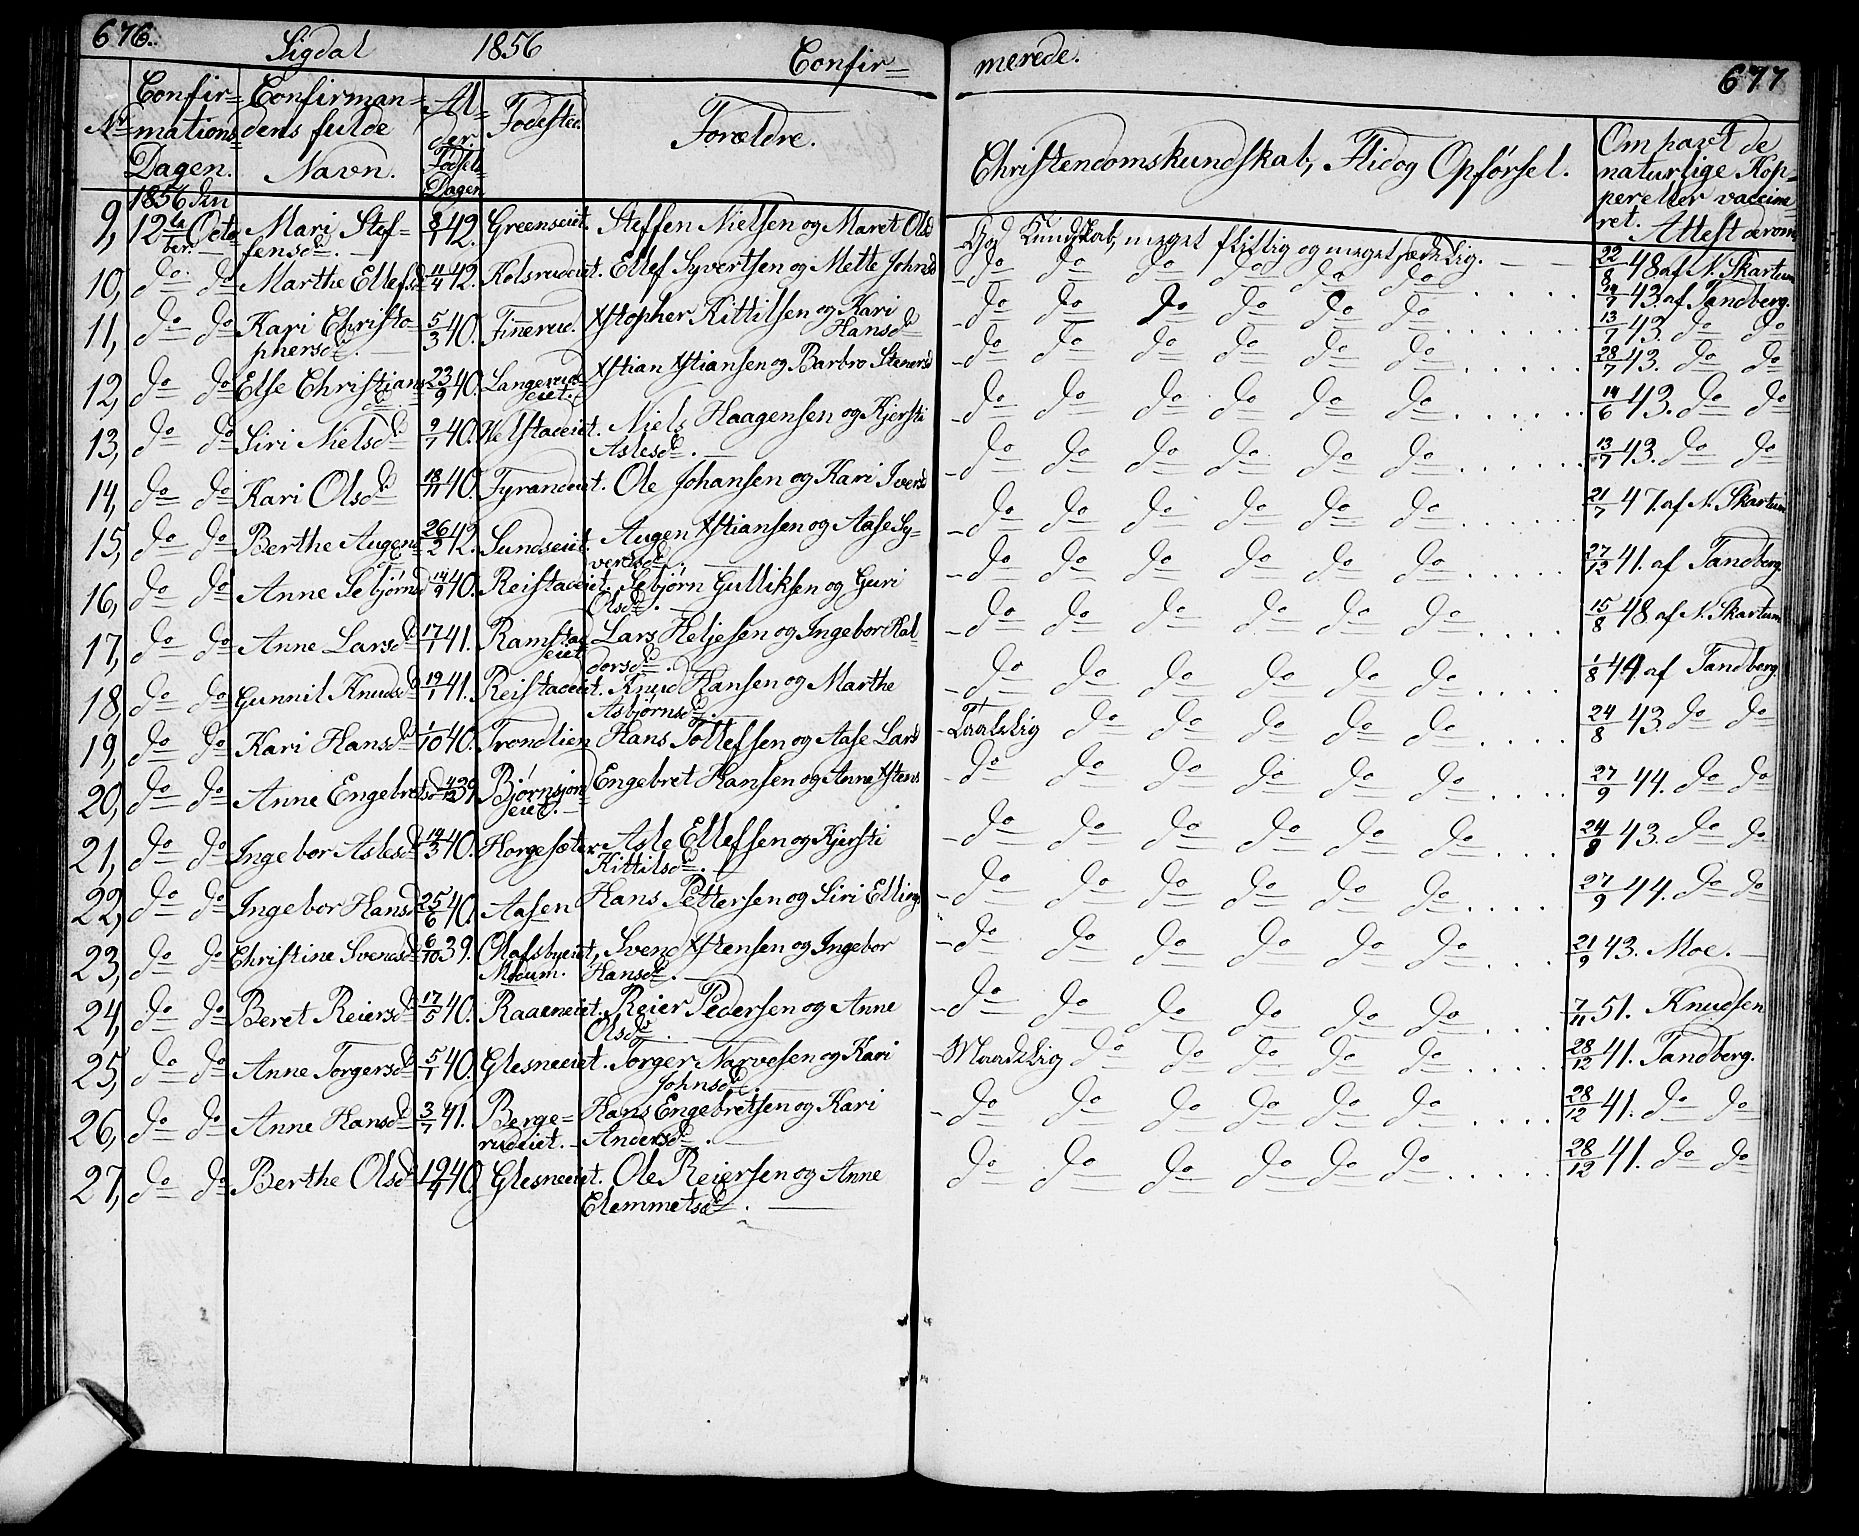 676. Sigdal 1856 Confir= merede. 677
Nr Confir= mations Dagen. Confirman= dens fulde Navn. Al= der. Fødsels Dagen Fødested. Forældre. Christendomskundskab, Flid og Opførsel. Om havt de naturlige Kop= per eller vaccine= ret. Attest derom
1856 den
9, 12te Octo Mari Stef- 8/1 42. Greenseiet. Steffen Nielsen og Maret Olsd -God Kundskab, meget flittig og meget sædelig. 22/8 48 af N. Skartum
ber. fensd.
10, do do Marthe Ellefsd 11/4 42. Kolsrudeiet. Ellef Syvertsen og Mette Johnsd -do do do do do do 19/7 43 af Tandberg.
11, do do Kari Christo- 5/3 40. Finerud. Xstopher Kittilsen og Kari -do do do do do do 13/7 43. do do
phersd. Hansd
12, do do Else Christians 23/9 40. Langerud= Xstian Xstiansen og Barbro Steners -do do do do do do 28/7 43. do do
d eiet.
13, do do Siri Nielsd 9/7 40. Helstadeiet. Niels Haagensen og Kjersti -do do do do do do 14/6 43. do do
Aslesd.
14, do do Kari Olsd 18/11 40. Tyrandeiet. Ole Johansen og Kari Iversd -do do do do do do 13/7 43. do do
15, do do Berthe Augens 26/2 42. Sundseiet. Augen Xstiansen og Aase Sy- -do do do do do do 21/7 47. af N. Skartum
vertsd.
16, do do Anne Sebjørnsd 14/9 40. Reistadeiet. Sebjørn Gulliksen og Guri -do do do do do do 27/12 41. af Tandberg.
Olsd.
17, do do Anne Larsd 17/7 41. Ramstad Lars Heljesen og Ingebor Hal- -do do do do do do 15/8 48 af N. Skartum
eiet dorsd.
18, do do Gunnil Knudsd 19/1 41. Reistadeiet. Knud Hansen og Marthe -do do do do do do 1/8 44 af Tandberg.
Asbjørnsd.
19, do do Kari Hansd 1/10 40. Trondlien Hans Tollefsen og Aase Larsd -Taalelig do do do do do 24/8 43. do do
20, do do Anne Engebretsd 39. Bjørnsjon Engebret Hansen og Anne Xstens -do do do do do do 27/9 44. do do
eiet.
21, do do Ingebor Aslesd 19/3 40. Horgesæter Asle Ellefsen og Kjersti -do do do do do do 24/8 43. do do
Kittilsd.
22, do do Ingebor Hansd 25/6 40. Aasen Hans Pettersen og Siri Ellings -do do do do do do 27/9 44. do do
23, do do Christine Svendsd 6/10 39. Olafsbyeiet, Svend Xstensen og Ingebor -do do do do do do 21/9 43. Moe.
Modum. Hansd.
24, do do Beret Reiersd 17/5 40. Raaeneiet. Reier Pedersen og Anne -do do do do do do 7/11 51. Knudsen
Olsd.
25, do do Anne Torgersd 5/1 40. Glesneeiet. Torger Narvesen og Kari -Maadelig do do do do do 28/12 41. Tandberg.
Johnsd
26, do do Anne Hansd 3/7 41. Berge= Hans Engebretsen og Kari -do do do do do do 28/12 41. do do
rudeiet. Andersd.
27, do do Berthe Olsd 19/4 40. Glesneeiet. Ole Reiersen og Anne do do do do do do 28/12 41. do do
Clemmetsd.